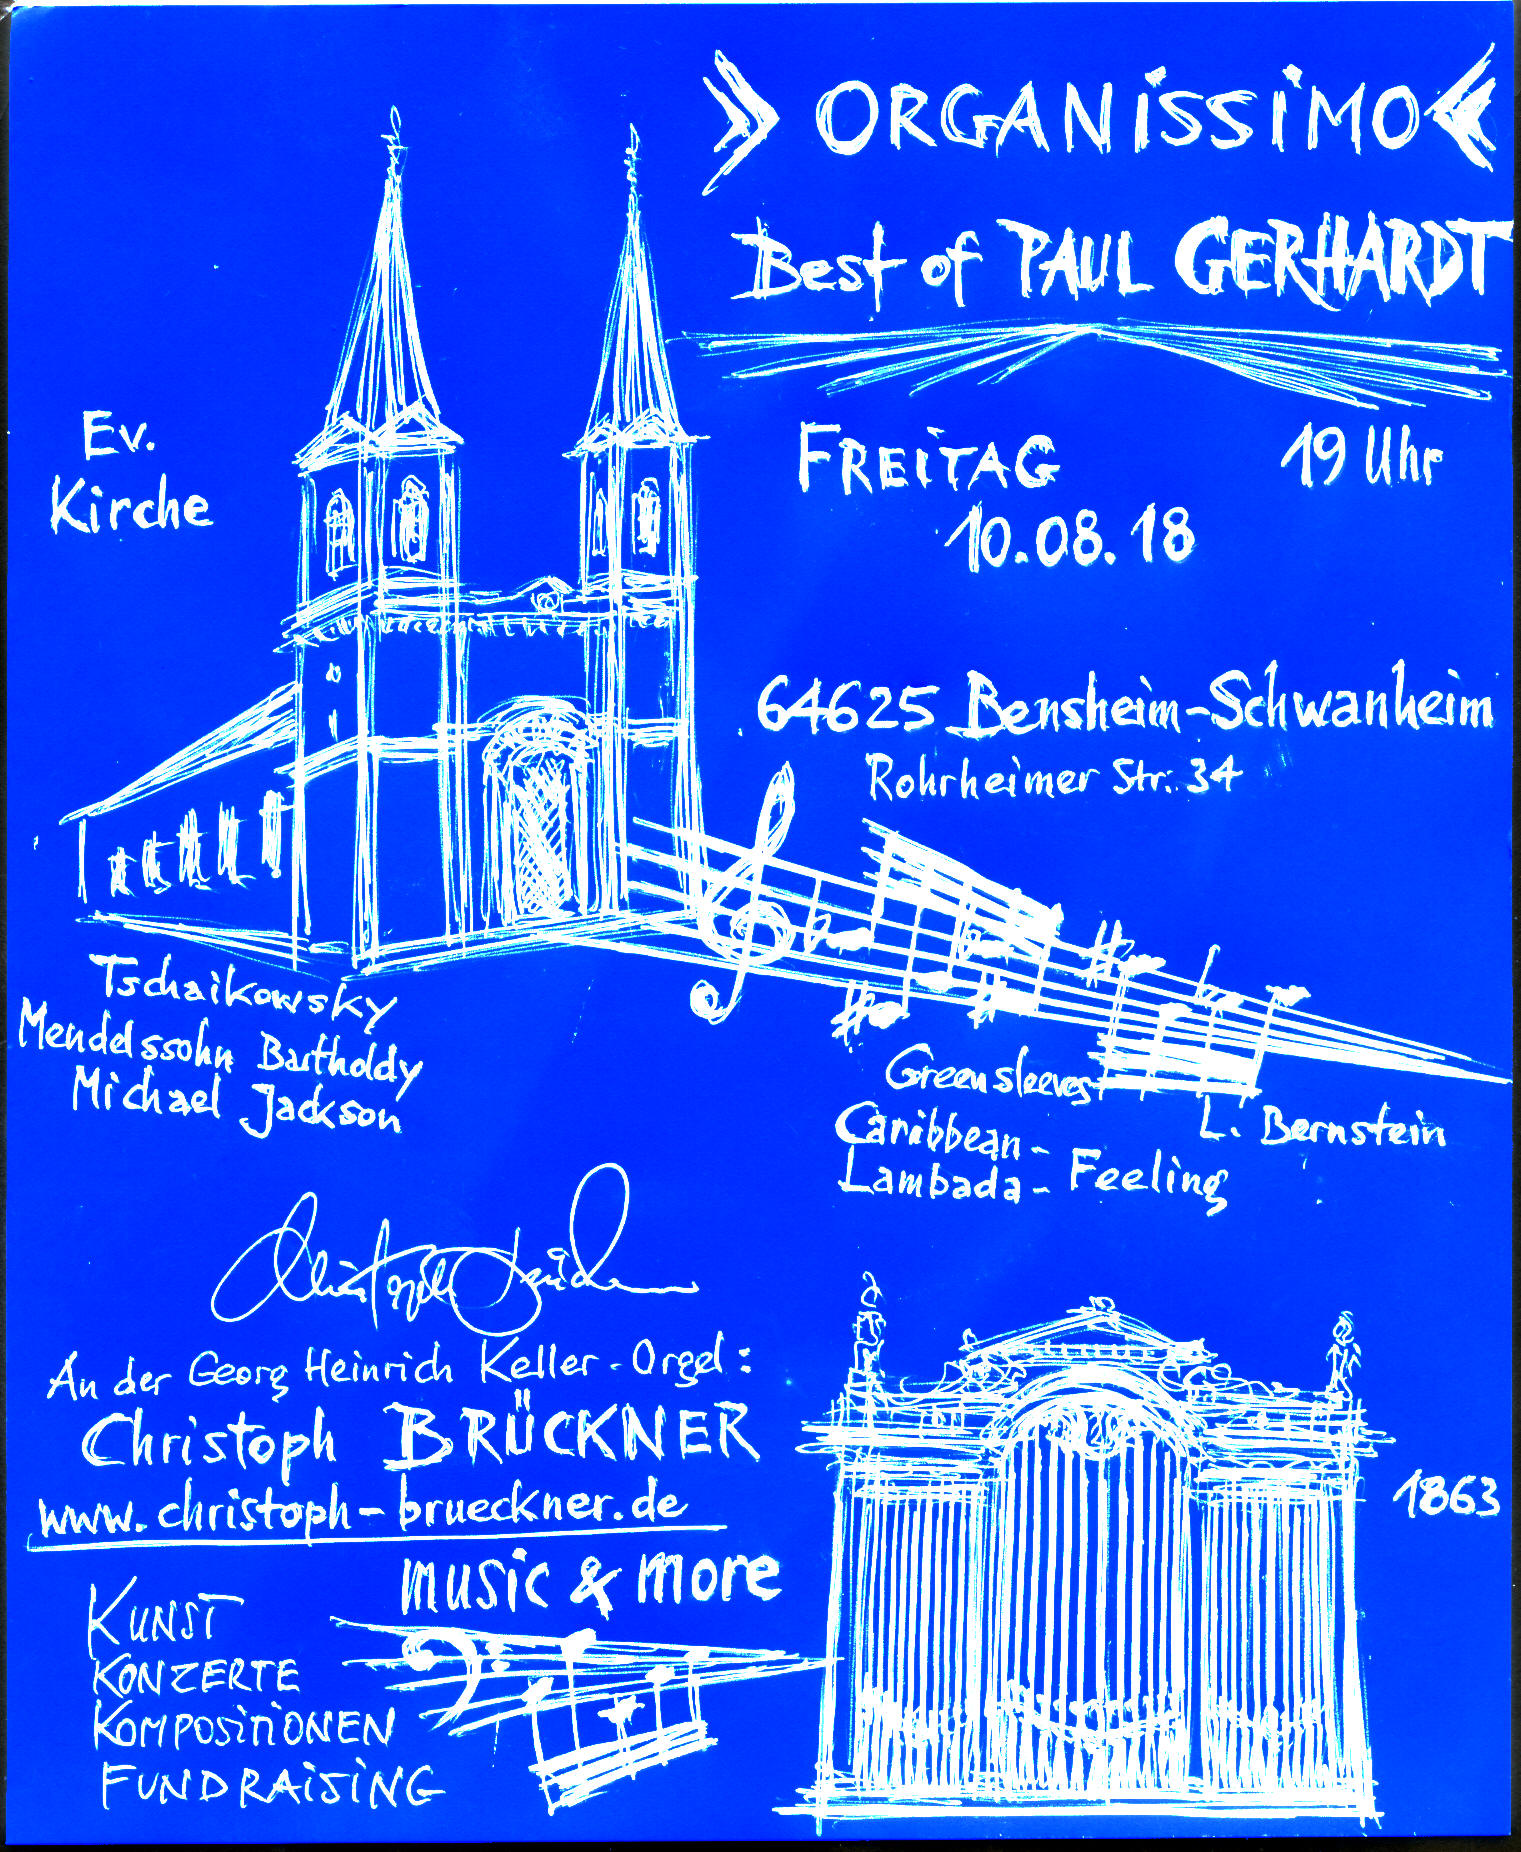 » ORGANiSSiMO «
Best of PAUL GERHARDT
Ev.
Kirche
FREiTAG 19 Uhr
10.08.18
64625 Bensheim-Schwanheim
Rohrheimer Str. 34
Tschaikowsky
Mendelssohn Bartholdy
Michael Jackson
Greensleeves
L. Bernstein
Caribbean-
Lambada- Feeling
An der Georg Heinrich Keller-Orgel:
Christoph BRÜCKNER
www.christoph-brueckner.de
music & more
1863
KUNST
KONZERTE
KOMPOSiTiONEN
FUNDRAiSiNG